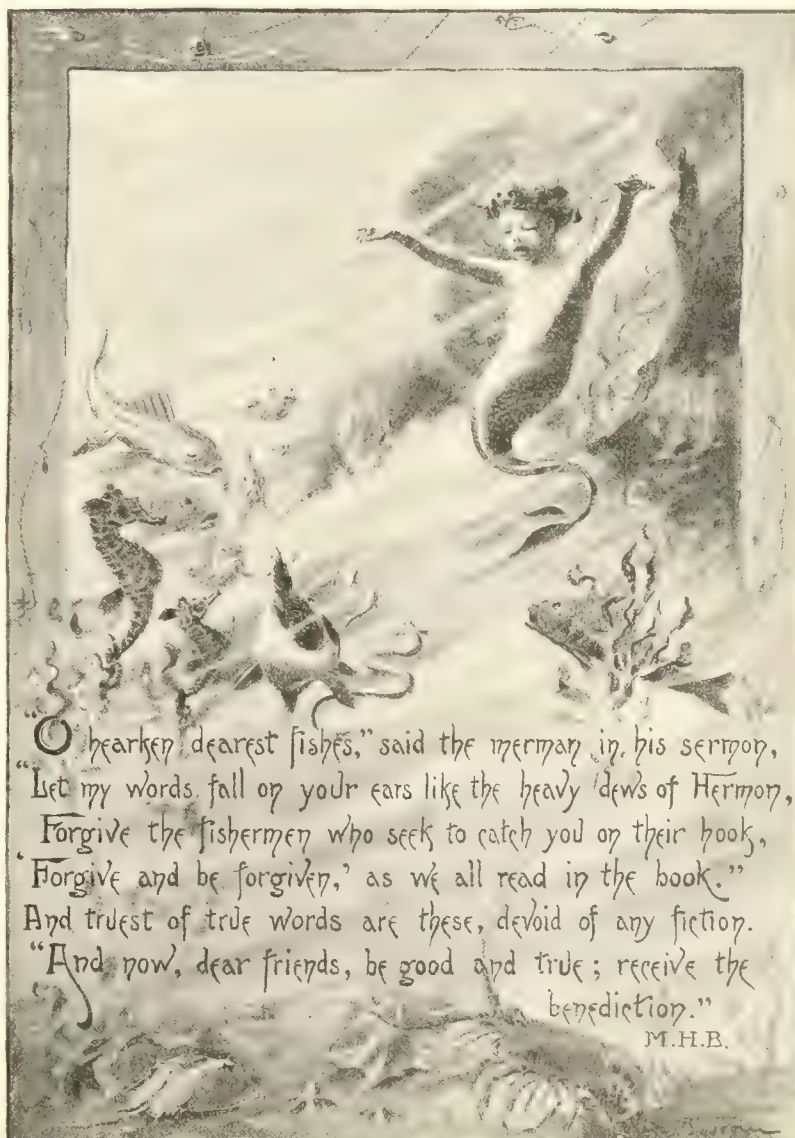 "O hearken dearest fishes," said the merman in his sermon,
"Let my words fall on your ears like the heavy dews of Hermon,
Forgive the fishermen who seek to catch you on their hook,
'Forgive and be forgiven,' as we all read in the book."
And truest of true words are these, devoid of any fiction.
"And now, dear friends, be good and true; receive the
benediction."
M.H.B.